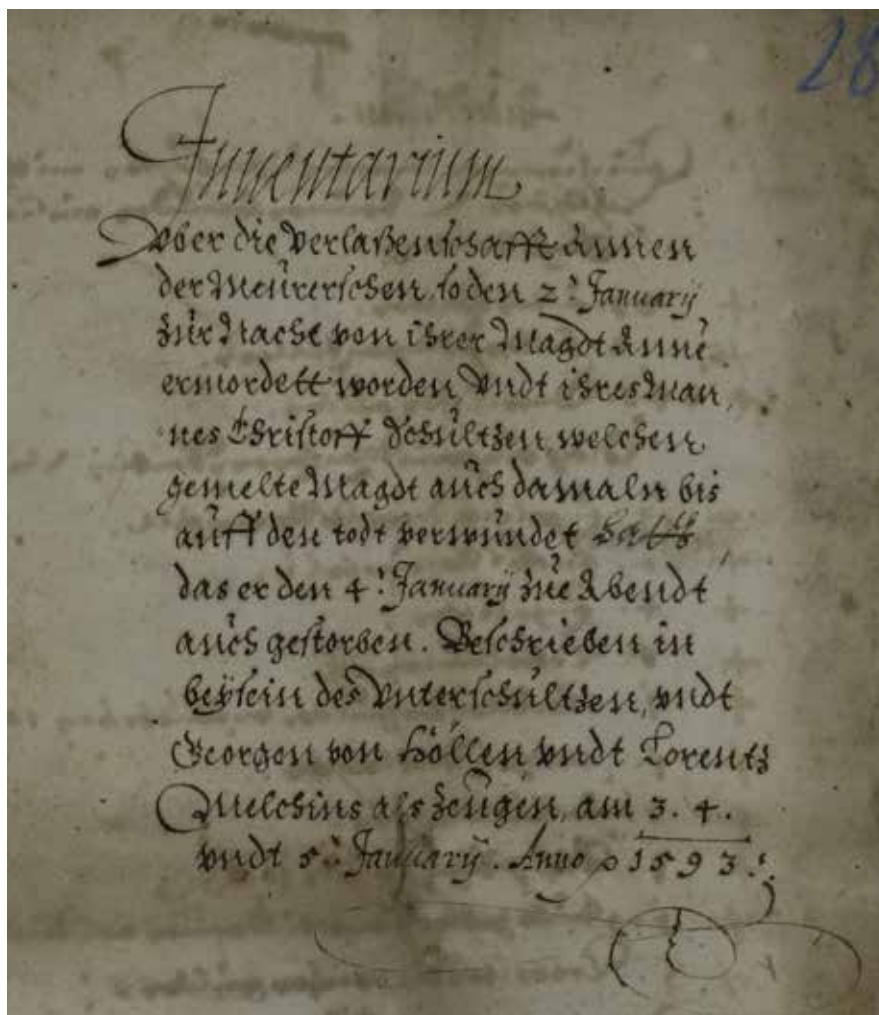 28
Inuentarium
Vber die Verlaßenschafft Annen
der Meürerschen, so den 2. January
zür Nacht von ihrer Magdt Anne
ermordett worden, Vndt ihres Man,
nes Christoff Schültzen, welchen
gemelte Magdt aüch damaln bis
aüff den todt verwündet
das er den 4. January züe Abendt
aüch gestorben. Beschrieben in
beÿsein des Vnterschültzen, vndt
Georgen von Höllen vndt Lorentz
Quelchins als Zeügen, am 3. 4.
vndt 5. January. Anno 1593.